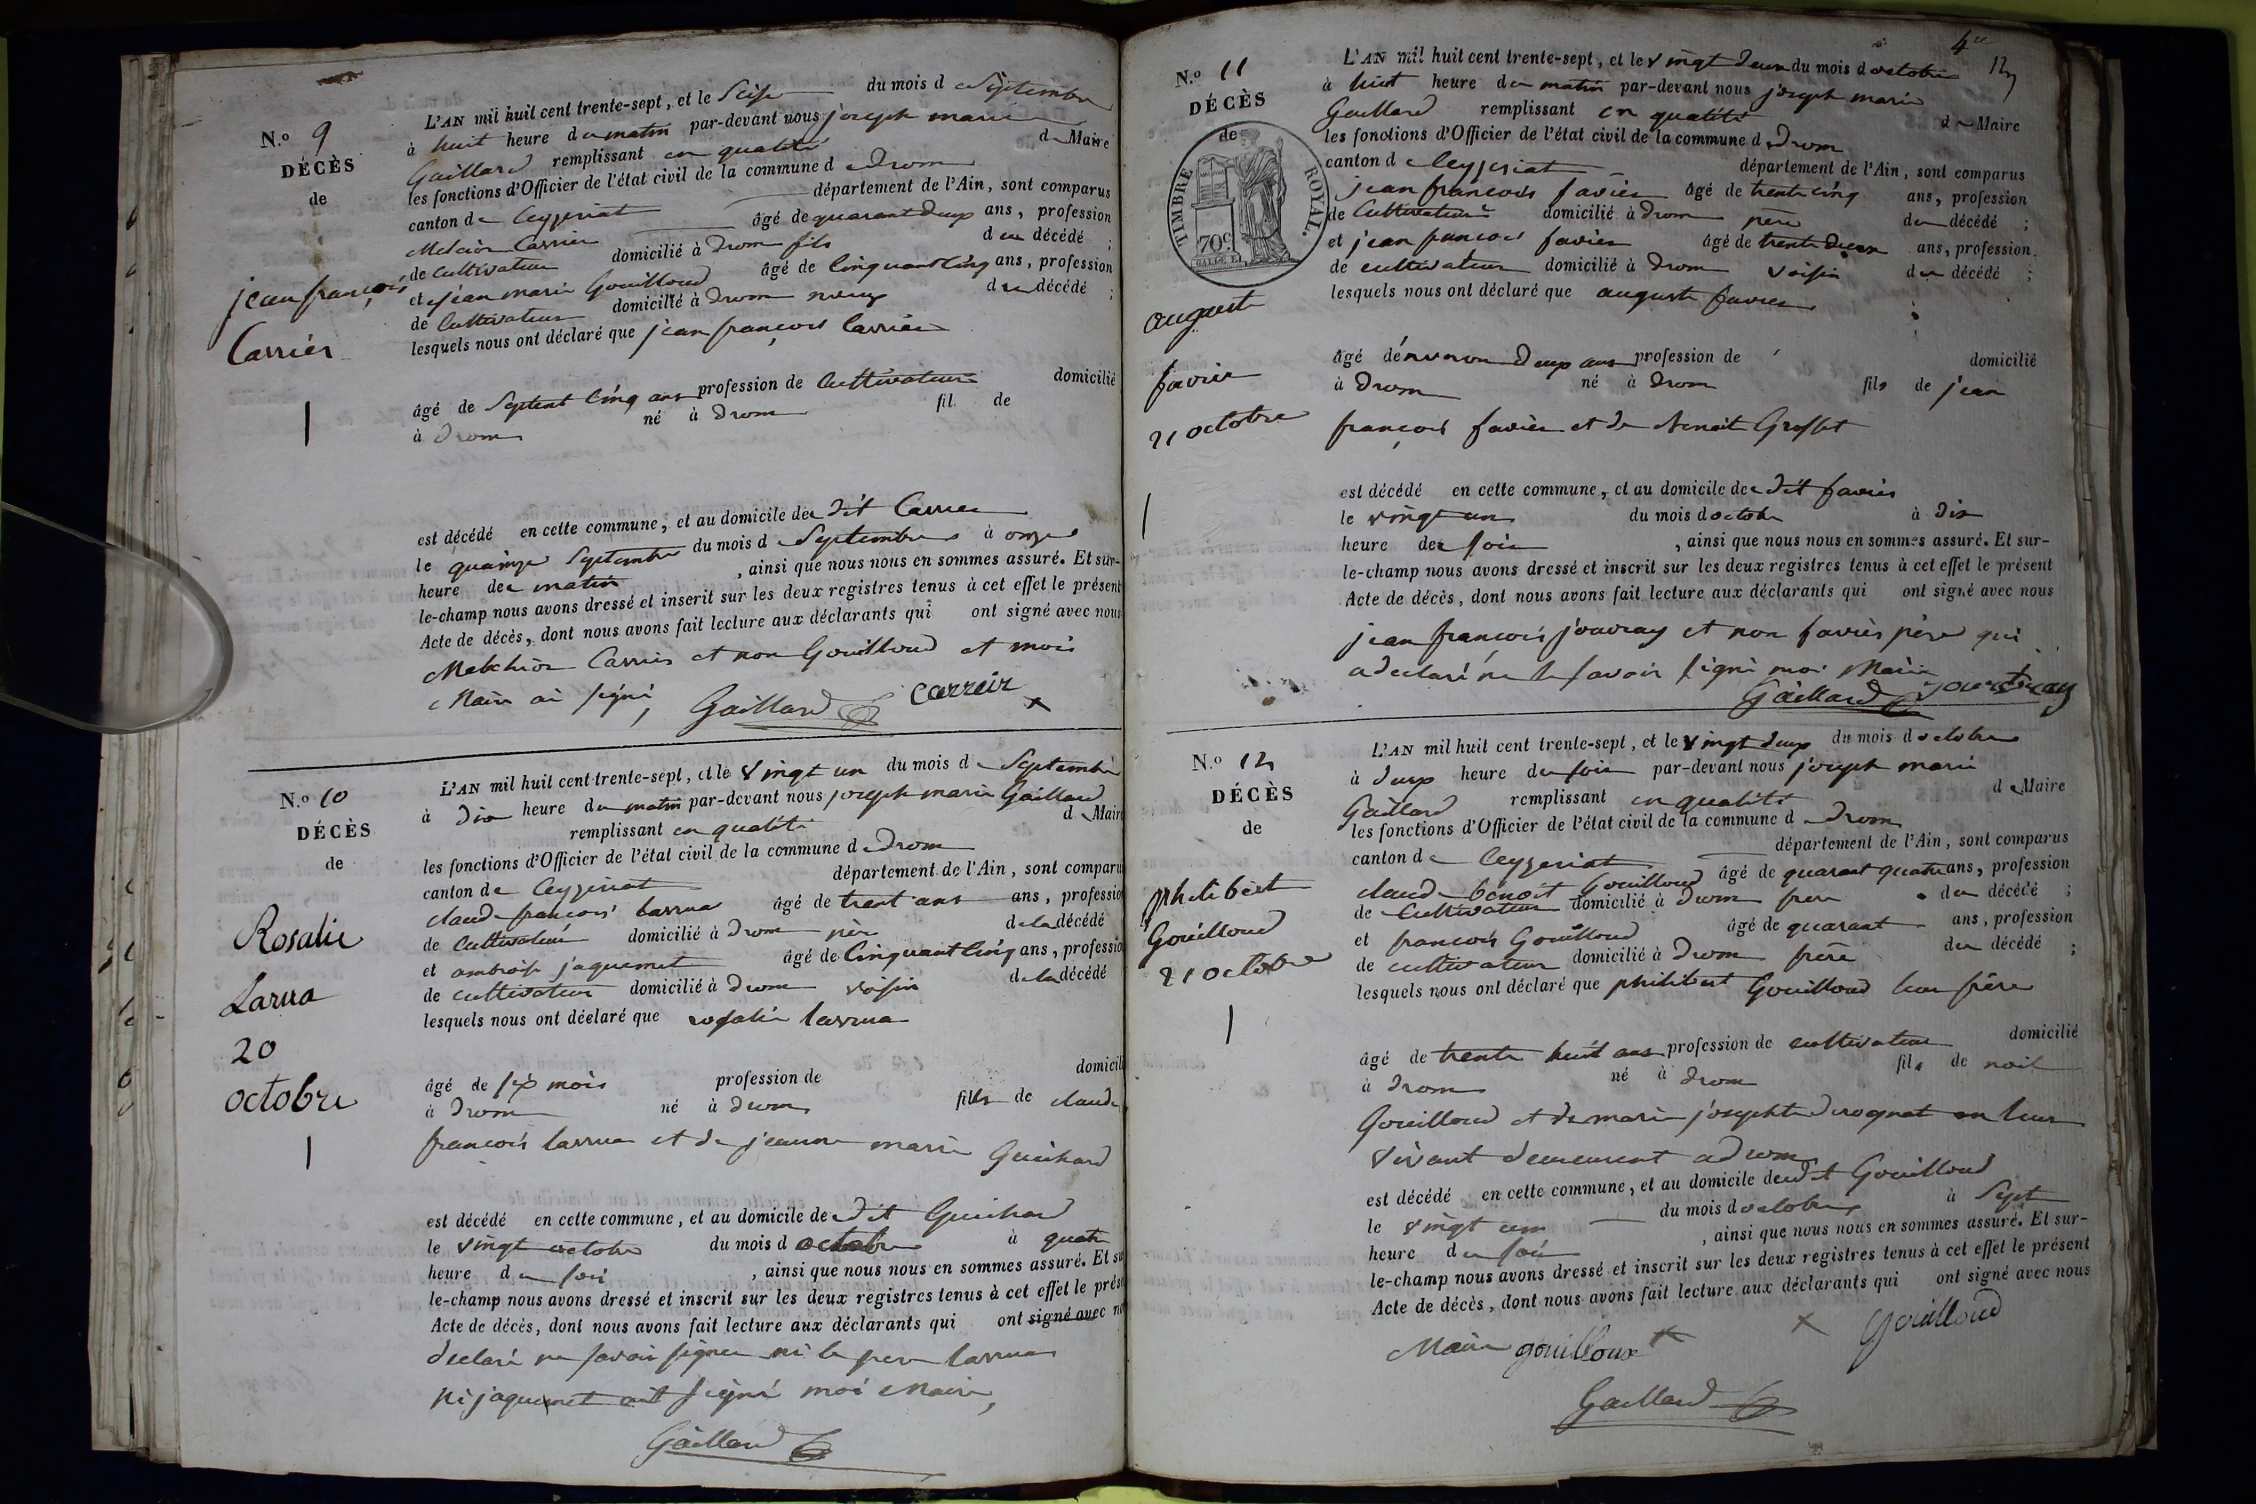 N.o 9
DÉCÈS
de
jean françois
Carrier
L'AN mil huit cent trente-sept, et le Seise du mois d e Septembre
à huit heure du matin par-devant nous joseph marie
Gaillard remplissant en qualité de Maire
les fonctions d'Officier de l'état civil de la commune d e Drom
canton de Ceyzeriat département de l'Ain, sont comparus
Melcior Carrier âgé de quarant deux ans, profession
de Cultivateur domicilié à Drom fils du décédé ;
et jean marie Gouilloud âgé de Cinquant Cinq ans, profession
de Cultivateur domicilié à Drom neveux du décédé ;
lesquels nous ont déclaré que jean françois Carrier
âgé de Septent Cinq ans profession de Cultivateur domicilié
à Drom né à Drom fil de
est décédé en cette commune, et au domicile de dit Carrier
le quainze Septembre du mois d e Septembre à onze
heure de matin, ainsi que nous nous en sommes assuré. Et sur-
le-champ nous avons dressé et inscrit sur les deux registres tenus à cet effet le présent
Acte de décès, dont nous avons fait lecture aux déclarants qui ont signé avec nous
Melchior Carrier et non Gouilloud et mois
Maire ai signé, Gaillard Carreir
N.o 10
DÉCÈS
de
Rosalie
Larua
20
octobre
L'AN mil huit cent trente-sept, et le vingt un du mois d e Septembre
à Dix heure du matin par-devant nous joseph marie Gaillard
remplissant en qualité de Maire
les fonctions d'Officier de l'état civil de la commune d e Drom
canton de Ceyzeriat département de l'Ain, sont comparu
Claude françois Larrua âgé de trent ans ans, profession
de Cultivateur domicilié à Drom père de la décédé
et ambroise jaquemet âgé de Cinquant Cinq ans, profession
de cultivateur domicilié à Drom voisin de la décédé
lesquels nous ont déclaré que rosalie larrua
âgé de six mois profession de domicili
à Drom né à Drom fille de claude
francois larrua et de jeanne marie Guichard
est décédé en cette commune, et au domicile de dit Guichard
le vingt octobre du mois d octobre à quatre
heure du soir, ainsi que nous nous en sommes assuré. Et su
le-champ nous avons dressé et inscrit sur les deux registres tenus à cet effet le prése
Acte de décès, dont nous avons fait lecture aux déclarants qui ont signé avec no
declaré ne savoir signer ni le pere larrua
ni jaquemet ont signé moi Maire,
Gaillard
4e
12
N.o 11
DÉCÈS
de
TIMBRE ROYAL.
70c.
auguste
favier
21 octobre
L'AN mil huit cent trente-sept, et le vingt Deux du mois d octobre
à huit heure du matin par-devant nous joseph marie
Gaillard remplissant en qualité de Maire
les fonctions d'Officier de l'état civil de la commune d e Drom
canton de Ceyzeriat département de l'Ain, sont comparus
jean francois favier âgé de trente cinq ans, profession
de Cultivateur domicilié à Drom père du décédé ;
et jean francois favier âgé de trente Deux ans, profession
de cultivateur domicilié à Drom voisin du décédé ;
lesquels nous ont déclaré que auguste favier
âgé d'environ Deux ans profession de domicilié
à Drom né à Drom fils de jean
françois favier et de benoit Grosset
est décédé en cette commune, et au domicile de dit favier
le vingt un du mois d octobre à dix
heure de soir, ainsi que nous nous en sommes assuré. Et sur-
le-champ nous avons dressé et inscrit sur les deux registres tenus à cet effet le présent
Acte de décès, dont nous avons fait lecture aux déclarants qui ont signé avec nous
jean françois jouvray et non favier père qui
a declaré ne le savoir signé moi Maire
Gaillard
N.o 12
DÉCÈS
de
philibert
Gouilloud
21 octobre
L'AN mil huit cent trente-sept, et le vingt deux du mois d octobre
à deux heure du soir par-devant nous joseph marie
Gaillard remplissant en qualité de Maire
les fonctions d'Officier de l'état civil de la commune d e Drom
canton de Ceyzeriat département de l'Ain, sont comparus
claude benoit Gouilloud âgé de quarant quatre ans, profession
de Cultivateur domicilié à Drom frere du décédé ;
et francois Gouilloud âgé de quarant ans, profession
de cultivateur domicilié à Drom frère du décédé ;
lesquels nous ont déclaré que philibert Gouilloud leur frère
âgé de trente huit ans profession de cultivateur domicilié
à Drom né à Drom fils de noil
Gouilloud et de marie josephte en leur
vivant demeurent a Drom
est décédé en cette commune, et au domicile de dit Gouilloud
le vingt un du mois d octobre à Sept
heure du soir, ainsi que nous nous en sommes assuré. Et sur-
le-champ nous avons dressé et inscrit sur les deux registres tenus à cet effet le présent
Acte de décès, dont nous avons fait lecture aux déclarants qui ont signé avec nous
Maire gouilloux Gouilloud
Gaillard